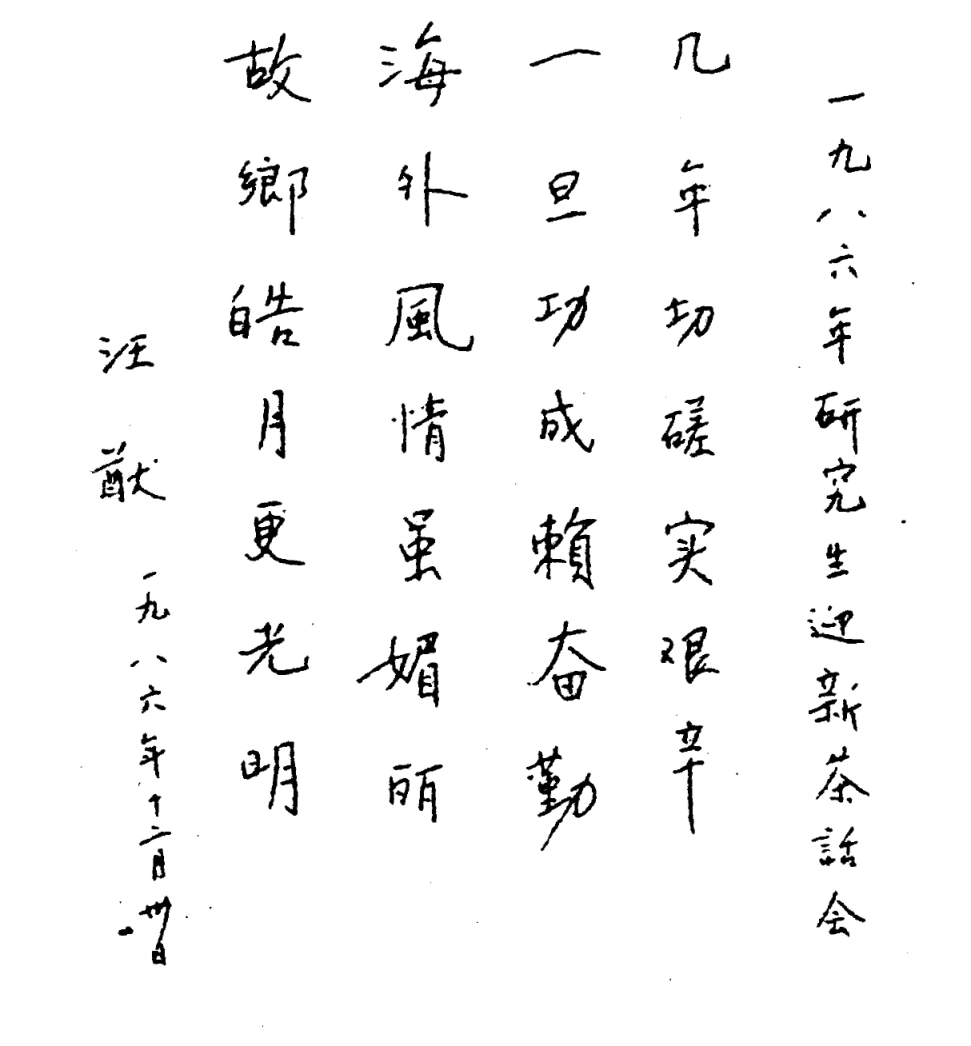 一九八六年研究生迎新茶話会
几年切磋实艰辛
一旦功成賴奋勤
海外風情虽媚丽
故鄉皓月更光明
汪猷
一九八六年十二月卅日